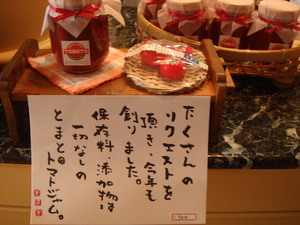 たくさんの
リクエストを
頂き、今年も
創りました。
保存料・添加物は
一切なしの
とまとの
トマトジャム。
TOMATO